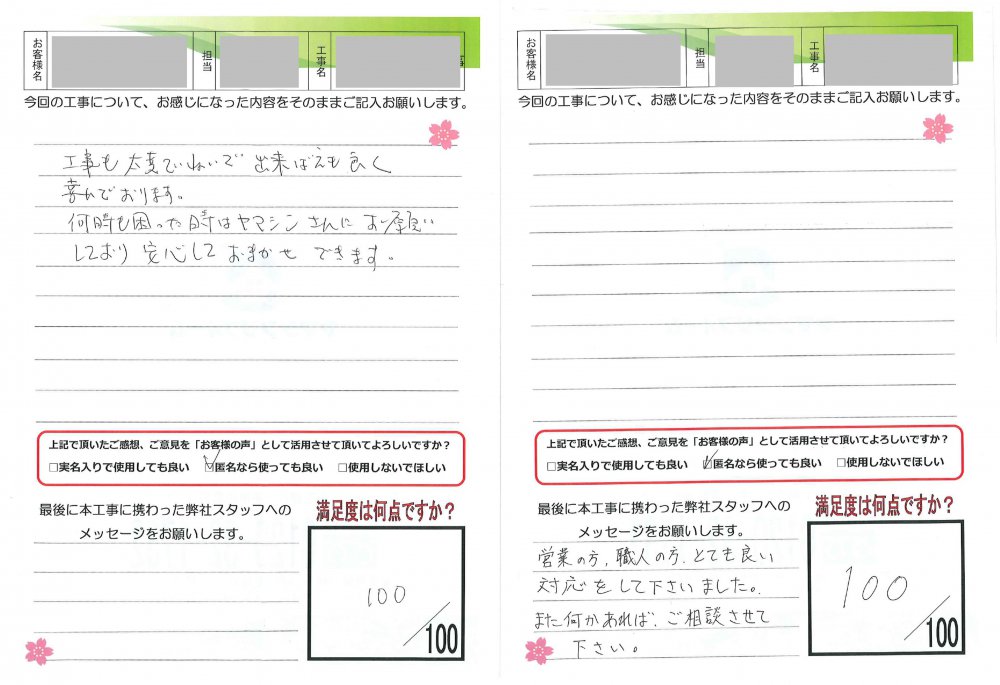 お客様名
担当
工事名
今回の工事について、お感じになった内容をそのままご記入お願いします。
工事も大変でいねいで 出来ばえも良く
喜んでおります。
何時も困った時はヤマシンさんにお願い
しており 安心しておまかせできます。
上記で頂いたご感想、ご意見を「お客様の声」として活用させて頂いてよろしいですか?
□実名入りで使用しても良い ☑匿名なら使っても良い □使用しないでほしい
最後に本工事に携わった弊社スタッフへの
メッセージをお願いします。
満足度は何点ですか?
100
/100
お客様名
担当
工事名
今回の工事について、お感じになった内容をそのままご記入お願いします。
上記で頂いたご感想、ご意見を「お客様の声」として活用させて頂いてよろしいですか?
□実名入りで使用しても良い ☑匿名なら使っても良い □使用しないでほしい
最後に本工事に携わった弊社スタッフへの
メッセージをお願いします。
営業の方、職人の方、とても良い
対応をして下さいました。
また何かあれば、ご相談させて
下さい。
満足度は何点ですか?
100
/100